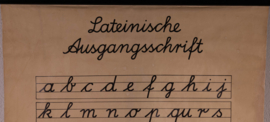 Lateinische
Ausgangsschrift
a b c d e f g h i j
k l m n o p qu r s